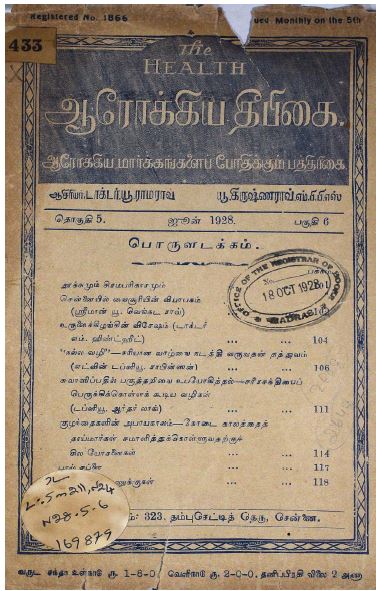 Registered No. 1866
ued Monthly on the 5th
433
The
HEALTH
ஆரோக்கிய தீபிகை.
ஆரோக்கிய மார்க்கங்களைப் போதிக்கும் பத்திரிகை.
ஆசிரியர். டாக்டர் யூ ராமராவ்
யூ. கிருஷ்ணராவ் எம்.பி.பி.எஸ்
தொகுதி 5.
ஜூன் 1928.
பகுதி 6
பொருளடக்கம்.
OFFICE OF THE REGISTRAR OF BOOKS
No.
18 OCT 1928
MADRAS
சென்னையில் வைசூரியின் வியாபகம்
(ஸ்ரீமான் யூ. வெங்கட ராவ்)
உருளைக்கிழங்கின் விசேஷம் (டாக்டர்
எம். ஹிண்ட்ஹீட்) ... ... 104
"நல்ல வழி"—சரியான வாழ்வை நடத்தி வருவதன் தத்துவம்
(எட்வின் டப்ளியூ. ராபின்ஸன்) ... ... 106
சுவாஸிப்பதில் பகுத்தறிவை உபயோகித்தல்—சரீரசக்தியைப்
பெருக்கிக்கொள்ளக் கூடிய வழிகள்
(டப்ளியூ. ஆர்தர் லால்) ... ... 111
குழந்தைகளின் அபாயகாலம்—கோடை காலத்தைத்
தாய்மார்கள் சமாளித்துக்கொள்ளுவதற்குச்
சில யோசனைகள் ... ... 114
... ... 117
... ... 118
L:5m211,N24
N28.5.6
169879
323, தம்புசெட்டித் தெரு, சென்னை.
வருட சந்தா உள்நாடு ரூ. 1-8-0. வெளிநாடு ரூ. 2-0-0. தனிப்பிரதி விலை 2 அணா